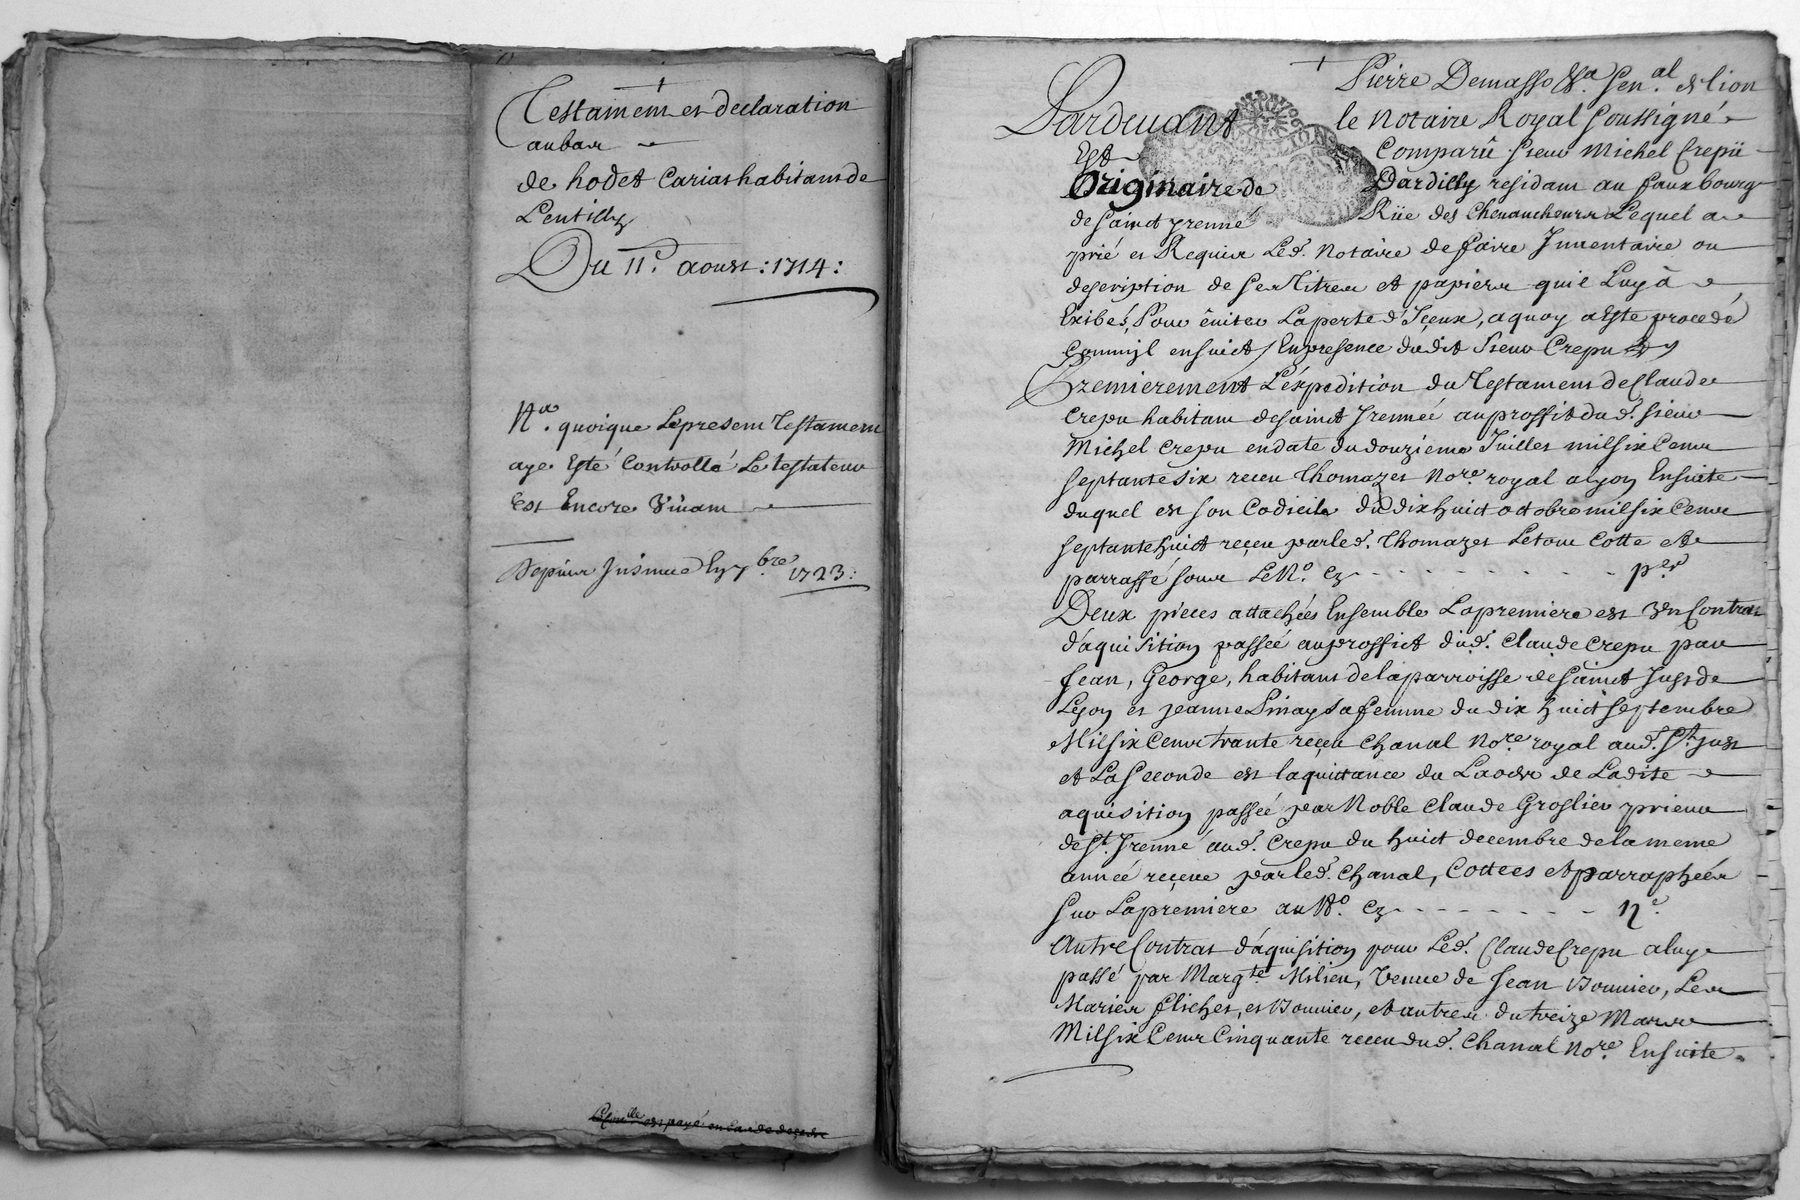 Testament et declaration
au bas
de hodet Carias habitans de
Lentilly
Du 11e. aoust : 1714 :
Na. quoique Lepresent Testament
aye Esté Controllé Le testateur
Est Encore Vivant
Depuis Insinué En 7bre 1723 :
Pierre Demasso &a. Senal. de lion
Pardevant le notaire Royal Soussigné
Est Comparû Sieur Michel Crepu
Originaire de Dardilly residant au fauxbourg
de Saint yrenné Rüe des Chevaucheurs Lequel a
prié et Requis Led. Notaire de faire Inventaire ou
description de Ses Titres et papiers qu'il Luy à
Exibés, Pour éviter La perte d'Iceux, a quoy a Esté procedé
Commil ensuict / En presence dudit Sieur Crepu
Premierement L'éxpedition du Testament de Claude
Crepu habitant de Sainct Irenneé au proffit dud. Sieur
Michel Crepu en date du douzieme Juillet mil six Cent
septante six receu Thomazet Nore. royal a Lyon Ensuite
duquel est son Codicile du dix huict octobre mil six Cent
septante huict reçeu par led. Thomazet Le tout Cotté et
parraffé sous Le No. - - - - - - - - - per
Deux pieces attachées Ensemble La premiere est Vn Contrat
d'aquisition passeé au proffict dud. Claude Crepu par
Jean, George, habitant de la parroisse de Sainct Just de
Lyon et jeanne Pinay Sa femme du dix huict Septembre
Mil six Cent trante reçeu Chanal Nore. royal aud. St. Just
et La Seconde est la quittance du Laods de Ladite
aquisition passeé par Noble Claude Groslier prieur
de St. Irenné aud. Crepu du huict decembre de la meme
anneé reçeue par led. Chanal, Cottees et parraphées
Sur La premiere au No. - - - - - - - -
Autre Contrat d'aquisition pour Led. Claude Crepu a luy
passé par Margte. Milieu, Veuve de Jean Bouvier, Les
Mariés Flichet, et Bouvier, et autres du treize Mars
Mil six Cent Cinquante receu dud. Chanal Nore. Ensuite